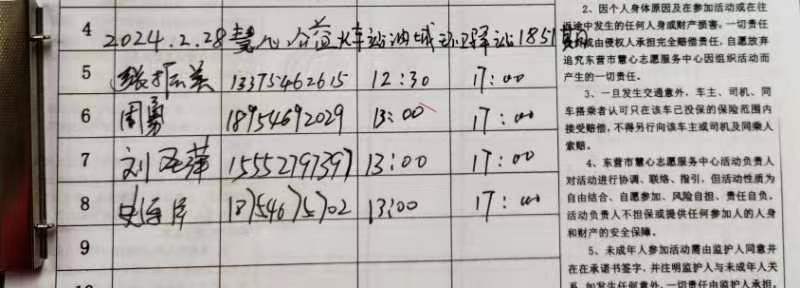 4 2024.2.28慧心公益火车站油城环卫驿站1851期
5 13375462615 12:30 17:00
6 周勇 18954692029 13:00 17:00
7 刘 萍 15552797397 13:00 17:00
8 18754675702 13:00 17:00
9
2、因个人身体原因及在参加活动或在往
返途中发生的任何人身或财产损害，一切责任
或由侵权人承担完全赔偿责任，自愿放弃
追究东营市慧心志愿服务中心因组织活动而
产生的一切责任。
3、一旦发生交通意外，车主、司机、同
车搭乘者认可只在该车已投保的保险范围内
接受赔偿，不得另行向该车主或司机及同乘人
索赔。
4、东营市慧心志愿服务中心活动负责人
对活动进行协调、联络、指引，但活动性质为
自由结合、自愿参加、风险自担、责任自负。
活动负责人不担保或提供任何参加人的人身
和财产的安全保障。
5、未成年人参加活动需由监护人同意并
在在承诺书签字，并注明监护人与未成年人关
系，如发生任何意外，一切责任由监护人承担。